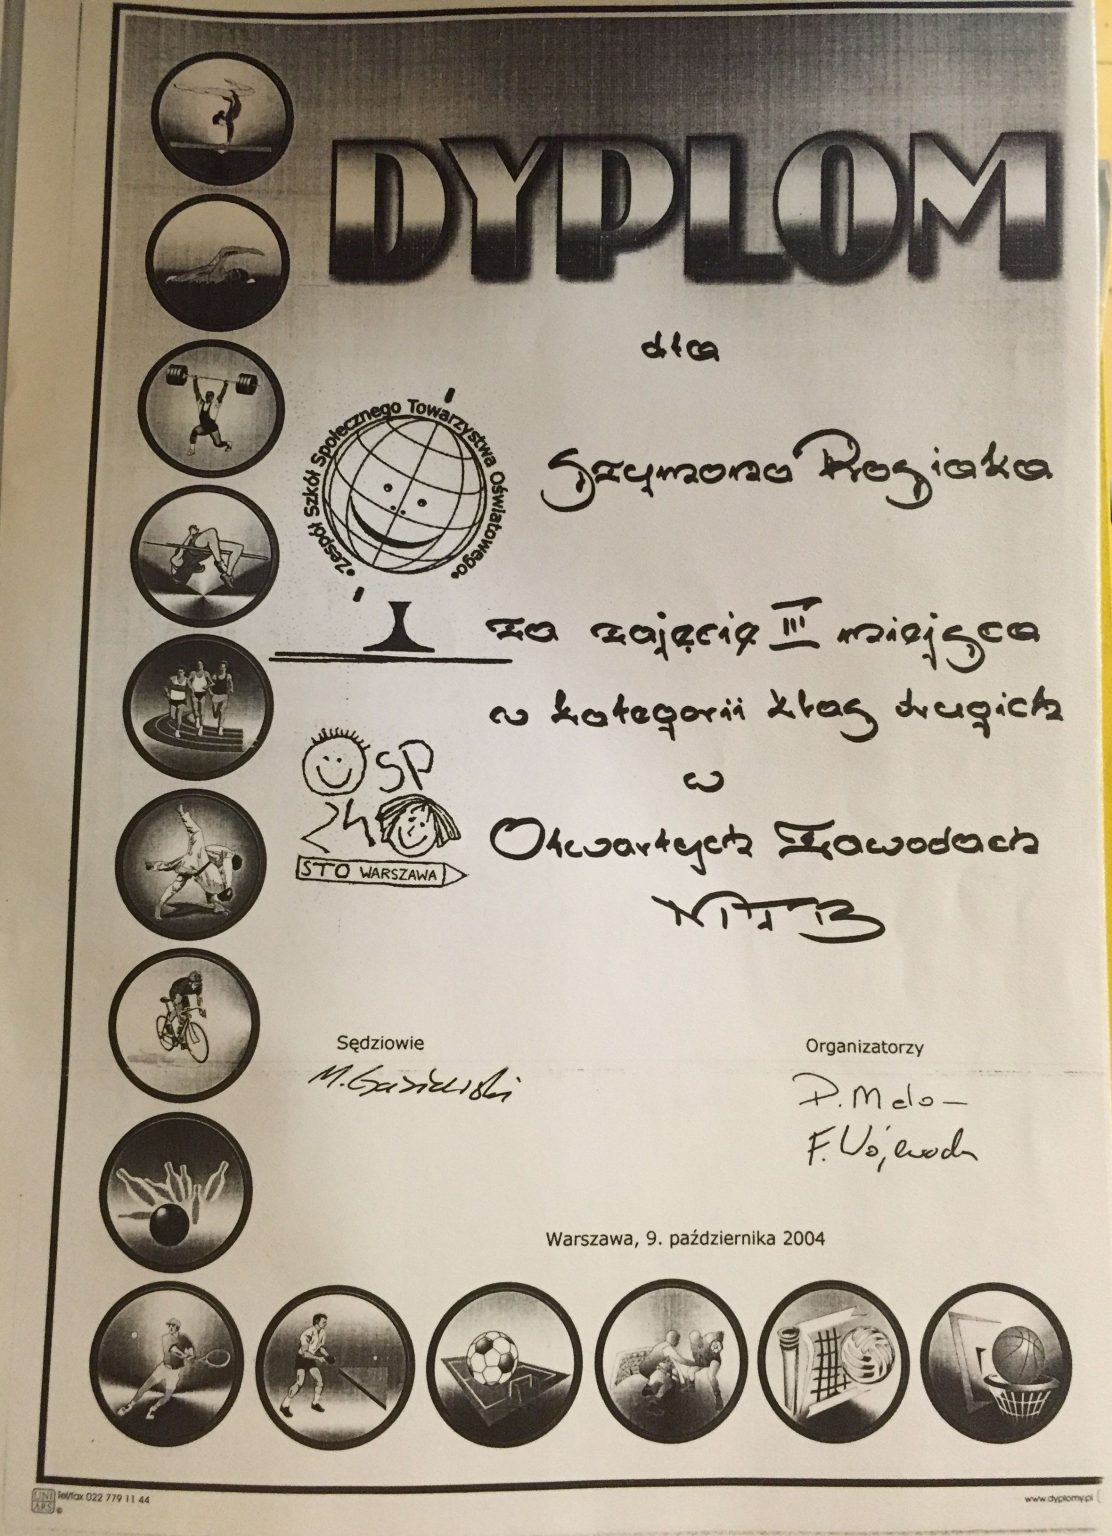 DYPLOM
dla
•Zespół Szkół Społecznego Towarzystwa Oświatowego•
Szymona Rogiaka
za zajęcie III miejsca
w kategorii klas drugich
w
Otwartych Zawodach
SP
24
STO WARSZAWA
Sędziowie
Organizatorzy
F. Wojewoda
Warszawa, 9. października 2004
UNI
ARS
©
Tel/fax 022 779 11 44
www.dyplomy.pl